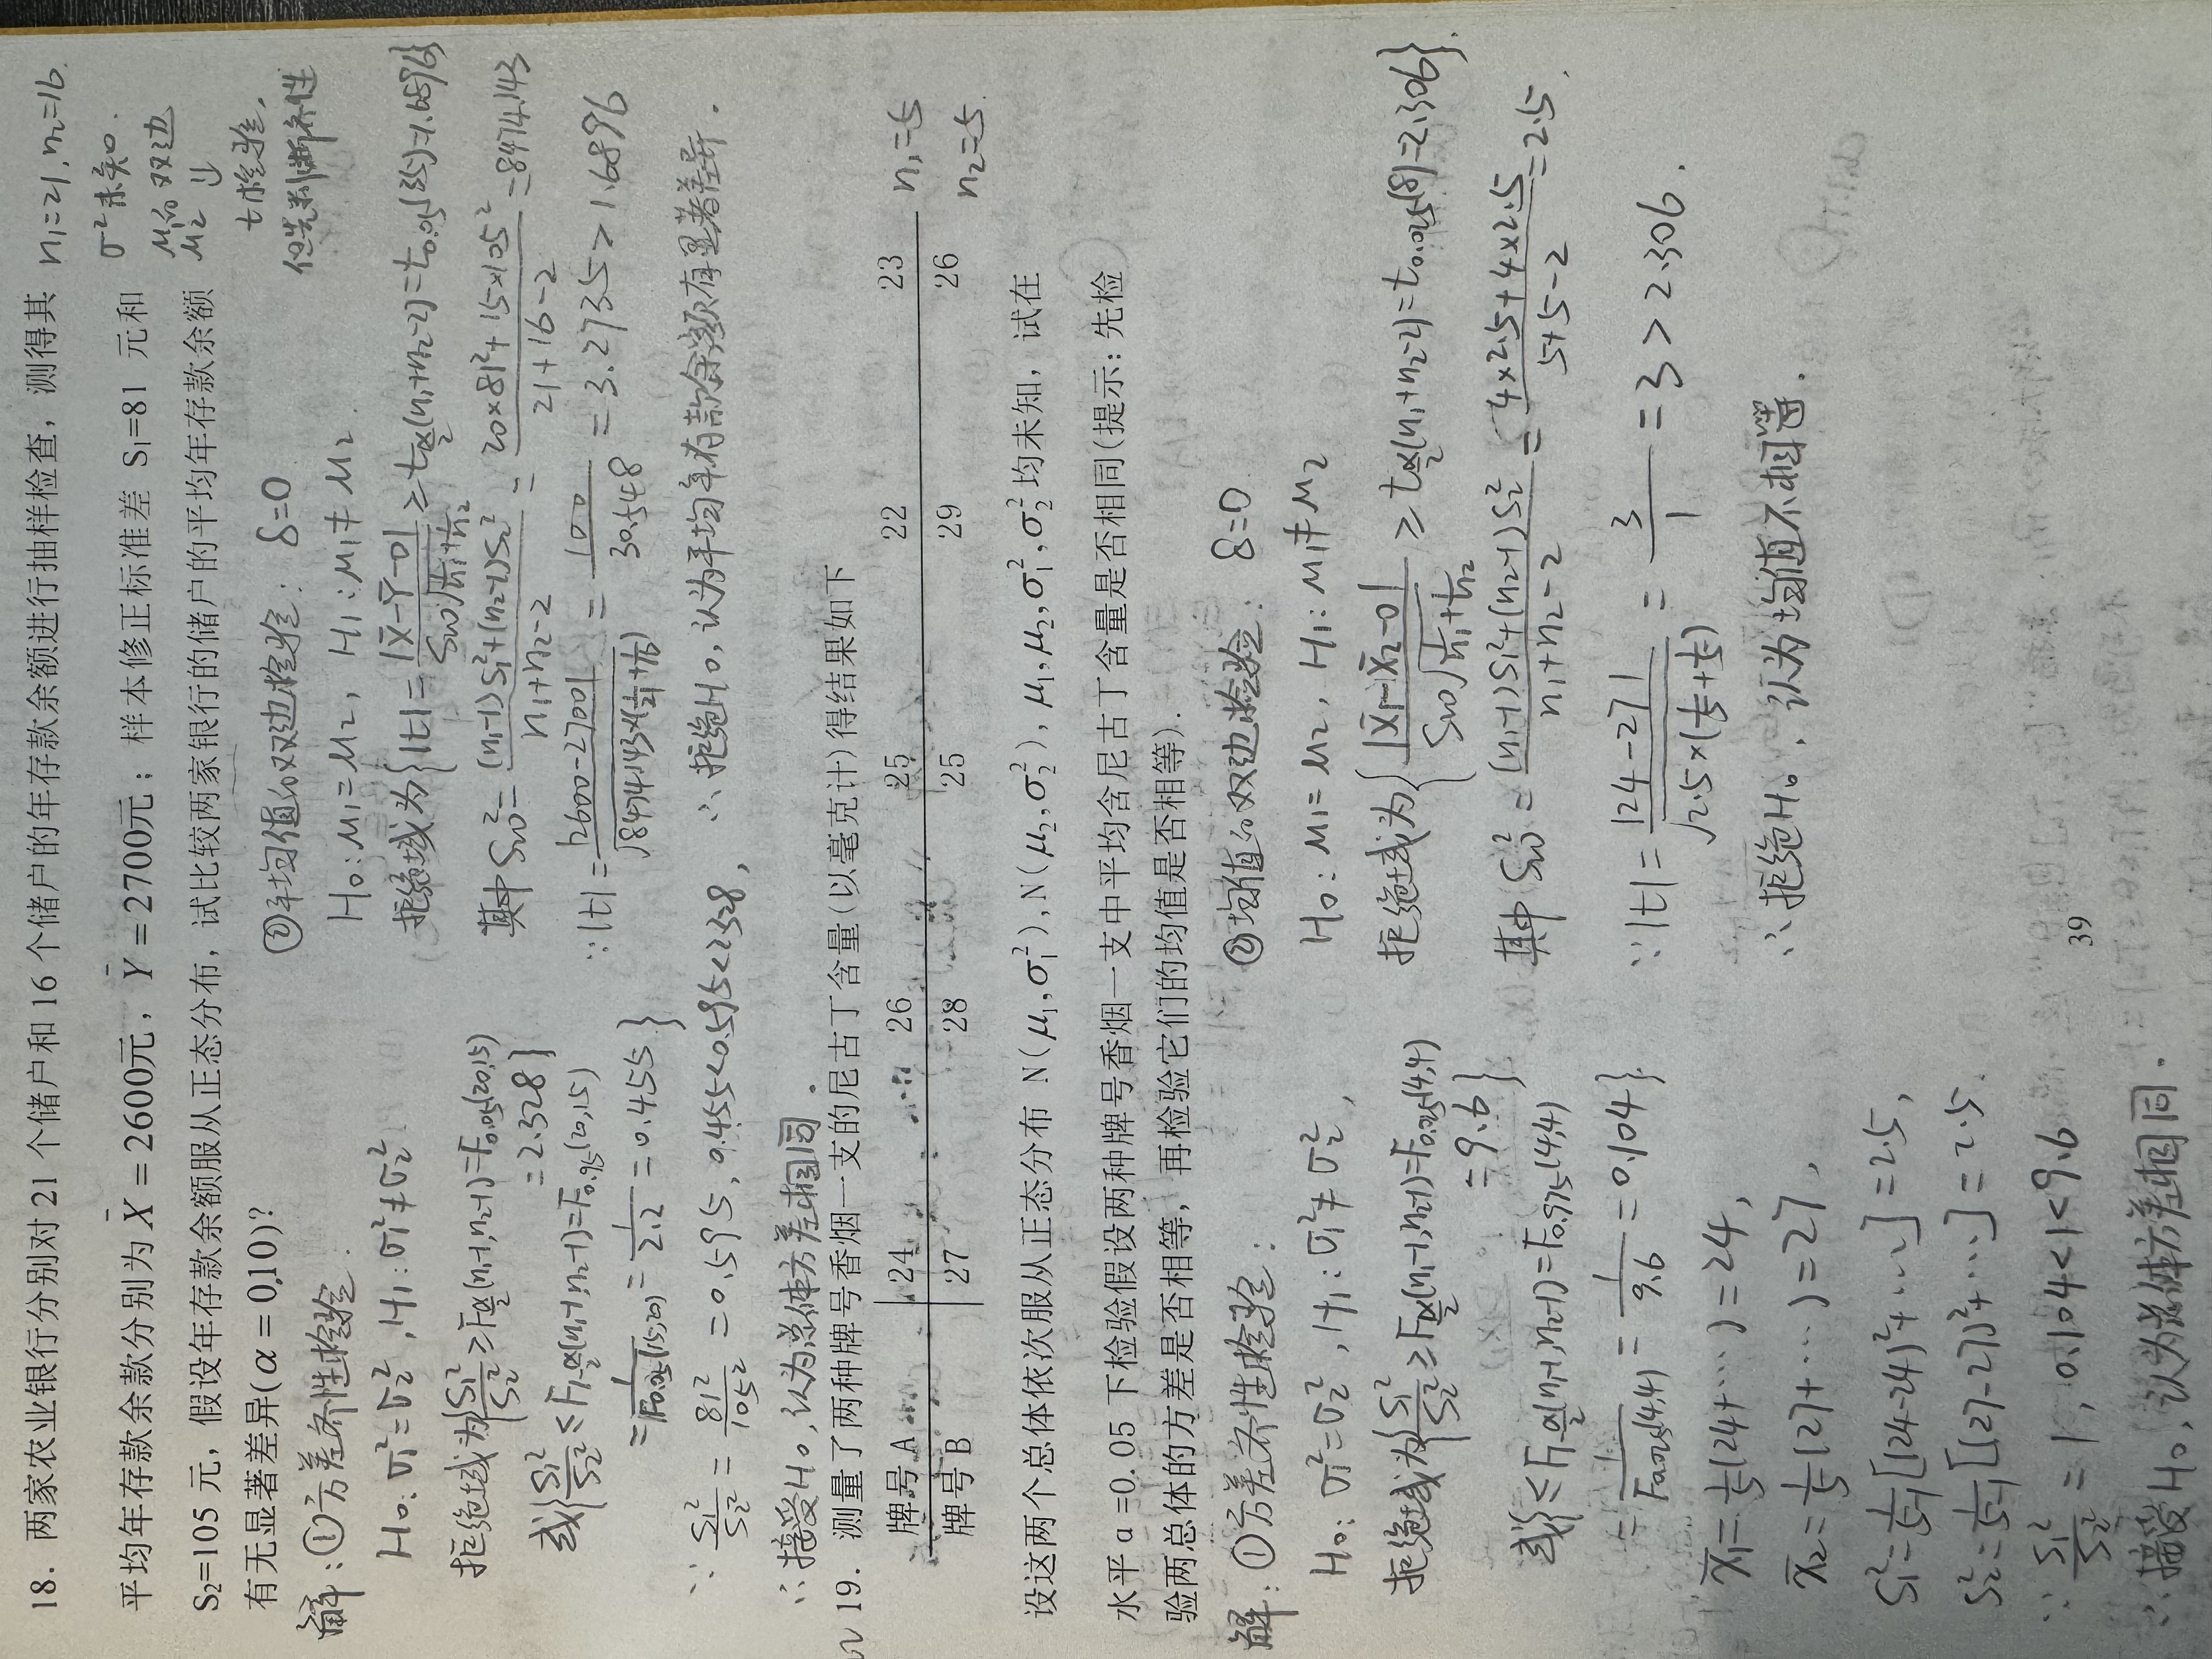 18. 两家农业银行分别对 21 个储户和 16 个储户的年存款余额进行抽样检查，测得其
平均年存款余款分别为 X̄ = 2600元，Ȳ = 2700元；样本修正标准差 S₁=81 元和
S₂=105 元，假设年存款余额服从正态分布，试比较两家银行的储户的平均年存款余额
有无显著差异(α = 0.10)?
n₁=21, n₂=16.
σ²未知.
μ₁的双边
μ₂ ⇓
t检验,
但先判断齐性
解：①方差齐性检验：
H₀: σ₁²=σ₂², H₁: σ₁²≠σ₂²
拒绝域为{S₁²/S₂² ≥ F_{α/2}(n₁-1,n₂-1)=F₀.₀₅(20,15)
=2.328}
或{S₁²/S₂² ≤ F_{1-α/2}(n₁-1,n₂-1)=F₀.₉₅(20,15)
=1/F₀.₀₅(15,20)=1/2.2=0.455}
∵ S₁²/S₂² = 81²/105² = 0.595, 0.455<0.595<2.328,
∴接受H₀,认为总体方差相同.
②平均值的双边检验： δ=0
H₀: μ₁=μ₂, H₁: μ₁≠μ₂.
拒绝域为{|t|=|X̄-Ȳ-0|/(Sw√(1/n₁+1/n₂)) ≥ t_{α/2}(n₁+n₂-2)=t₀.₀₅(35)=1.6896}
其中Sw²=((n₁-1)S₁²+(n₂-1)S₂²)/(n₁+n₂-2)=(20×81²+15×105²)/(21+16-2)=8474.143
∵|t|=|2600-2700|/√(8474.143×(1/21+1/16))=100/30.548=3.2735>1.6896
∴拒绝H₀,认为平均年存款余额有显著差异.
19. 测量了两种牌号香烟一支的尼古丁含量(以毫克计)得结果如下
牌号 A 24 26 25 22 23 n₁=5
牌号 B 27 28 25 29 26 n₂=5.
设这两个总体依次服从正态分布 N(μ₁,σ₁²),N(μ₂,σ₂²), μ₁,μ₂,σ₁²,σ₂²均未知，试在
水平α=0.05 下检验假设两种牌号香烟一支中平均含尼古丁含量是否相同(提示：先检
验两总体的方差是否相等，再检验它们的均值是否相等).
解：①方差齐性检验：
H₀: σ₁²=σ₂², H₁: σ₁²≠σ₂²,
拒绝域为{S₁²/S₂² ≥ F_{α/2}(n₁-1,n₂-1)=F₀.₀₂₅(4,4)
=9.6}
或{≤F_{1-α/2}(n₁-1,n₂-1)=F₀.₉₇₅(4,4)
=1/F₀.₀₂₅(4,4)=1/9.6=0.104}
x̄₁=1/5(24+⋯)=24,
x̄₂=1/5(27+⋯)=27,
S₁²=1/(5-1)[(24-24)²+⋯]=2.5,
S₂²=1/(5-1)[(27-27)²+⋯]=2.5.
∵ S₁²/S₂²=1, 0.104<1<9.6
∴接受H₀,认为总体方差相同.
②均值的双边检验： δ=0
H₀: μ₁=μ₂, H₁: μ₁≠μ₂
拒绝域为{|X̄₁-X̄₂-0|/(Sw√(1/n₁+1/n₂)) ≥ t_{α/2}(n₁+n₂-2)=t₀.₀₂₅(8)=2.306}.
其中Sw²=((n₁-1)S₁²+(n₂-1)S₂²)/(n₁+n₂-2)=(4×2.5+4×2.5)/(5+5-2)=2.5.
∵|t|=|24-27|/√(2.5×(1/5+1/5))=3/1=3>2.306.
∴拒绝H₀,认为均值不相等.
39